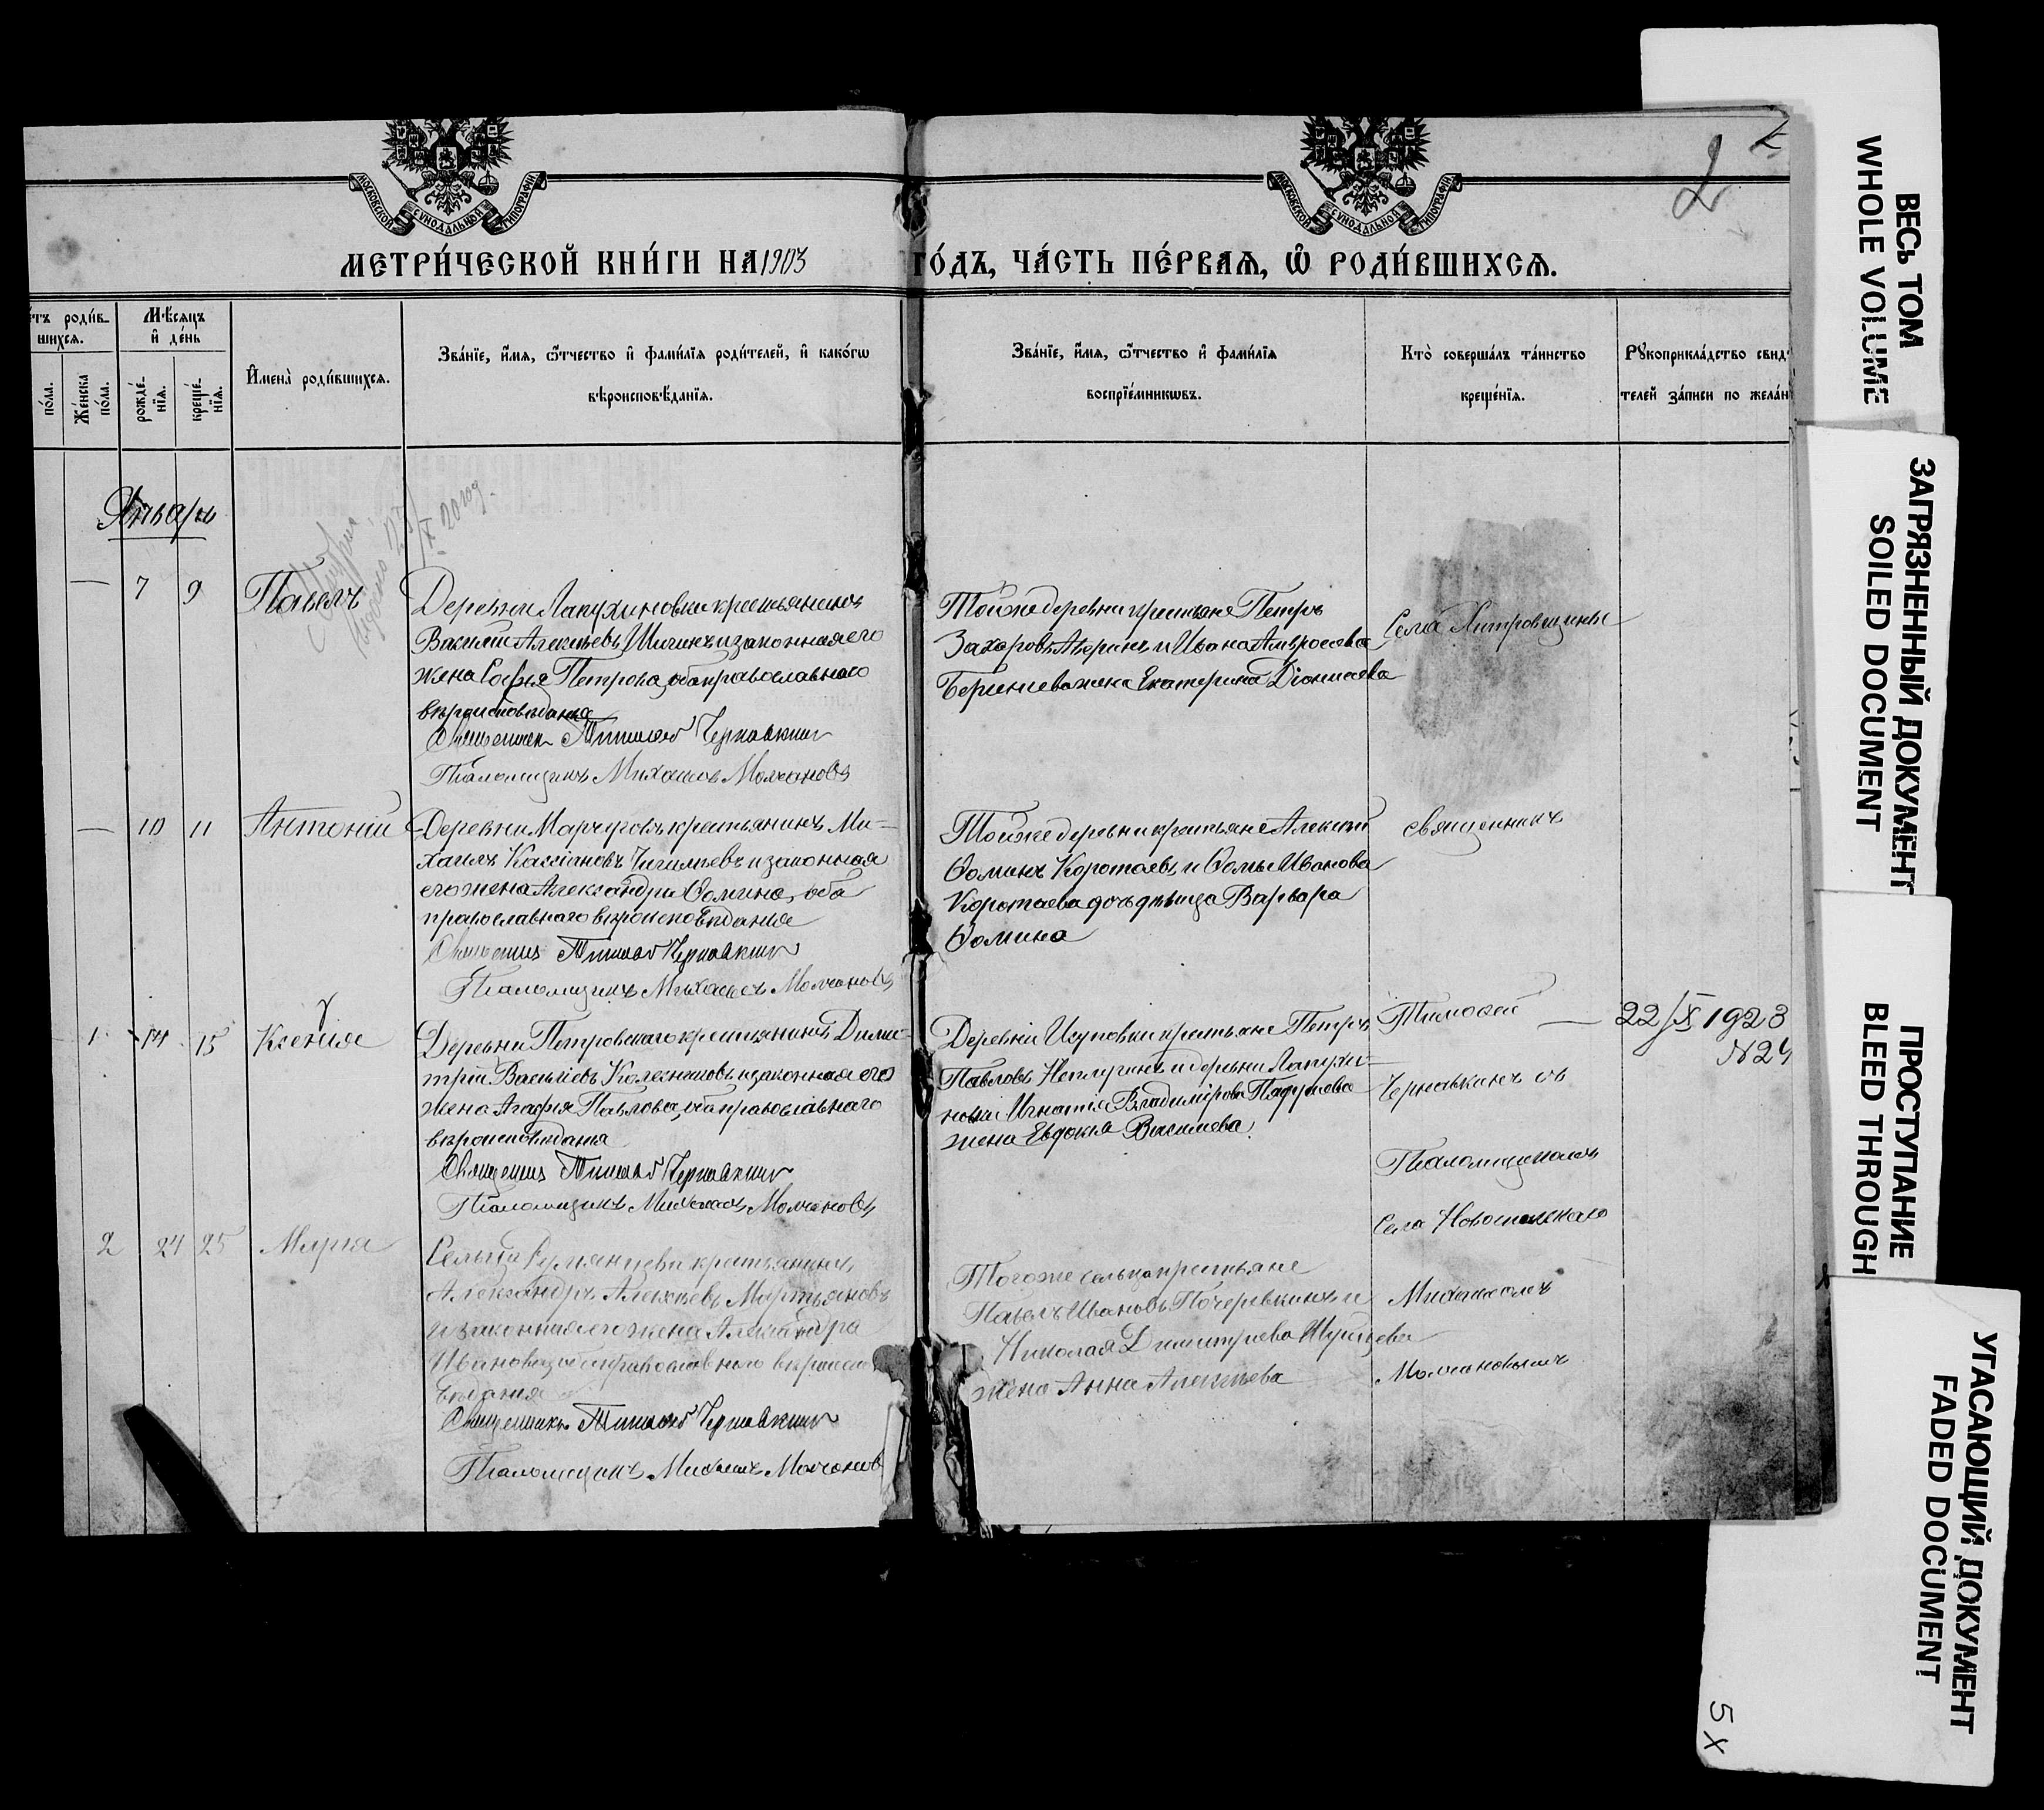 МОСКОВСКОЙ СѴНОДАЛЬНОЙ ТИПОГРАФІИ
МОСКОВСКОЙ СѴНОДАЛЬНОЙ ТИПОГРАФІИ
2
МЕТРИ́ЧЕСКОЙ КНИ́ГИ НА 1903 ГО́ДЪ, ЧА́СТЬ ПЕ́РВАЯ, Ѡ҆ РОДИ́ВШИХСЯ.
тъ роди́в-
шихся.
Мѣ́сяцъ
и҆ де́нь
по́ла.
Же́нска
по́ла.
рожде́-
нїя.
креще́-
нїя.
И҆мена̀ роди́вшихся.
Зва́нїе, и҆́мя, ѻ҆́тчество и҆ фами́лїя роди́телей, и҆ како́гѡ
вѣроисповѣ́данїя.
Зва́нїе, и҆́мя, ѻ҆́тчество и҆ фами́лїя
воспрїе́мникѡвъ.
Кто̀ соверша́лъ та́инство
креще́нїя.
Рꙋкоприкла́дство свид
телей за́писи по жела́н
Январь
X 20 год.
— 7 9 Павелъ
Деревни Лапухиновки крестьянинъ
Василій Алексѣевъ Шигинъ и законная его
жена Софія Петрова, оба православнаго
вѣроисповѣданія
Священникъ Тимоѳей Чернавкинъ
Псаломщикъ Михаилъ Молчановъ
Той же деревни крестьяне Петръ
Захаровъ и Ивана Амвросіева
жена Екатерина Діонисіева
Села Хитровщины
— 10 11 Антоній
Деревни крестьянинъ Ми-
хаилъ Кассіановъ и законная
его жена Александра Ѳомина, оба
православнаго вѣроисповѣданія
Священникъ Тимоѳей Чернавкинъ
Псаломщикъ Михаилъ Молчановъ
Той же деревни крестьяне Алексѣй
Ѳоминъ Коротаевъ и Ѳомы Иванова
Коротаева дочь дѣвица Варвара
Ѳомина
священникъ
1 14 15 Ксенія
Деревни Петровскаго крестьянинъ Дими-
трій Васильевъ Колесниковъ и законная его
жена Агафія Павлова, оба православнаго
вѣроисповѣданія
Священникъ Тимоѳей Чернавкинъ
Псаломщикъ Михаилъ Молчановъ
Деревни крестьяне Петръ
Павловъ и деревни Лапухи-
новки Игнатія Владимірова
жена Евдокія Васильева.
Тимоѳей
Чернавкинъ съ
Псаломщикомъ
Села
— 22/X 1923
N 24
2 24 25 Марія
Сельца Румянцева крестьянинъ
Александръ Алексѣевъ Мартьяновъ
и законная его жена Александра
Иванова, оба православнаго вѣроиспо-
вѣданія
Священникъ Тимоѳей Чернавкинъ
Псаломщикъ Михаилъ Молчановъ
Того же сельца крестьяне
Павелъ Ивановъ и
Николая Димитріева
жена Анна Алексѣева
Михаиломъ
Молчановымъ
ВЕСЬ ТОМ
WHOLE VOLUME
ЗАГРЯЗНЕННЫЙ ДОКУМЕНТ
SOILED DOCUMENT
ПРОСТУПАНИЕ
BLEED THROUGH
УГАСАЮЩИЙ ДОКУМЕНТ
FADED DOCUMENT
5 X